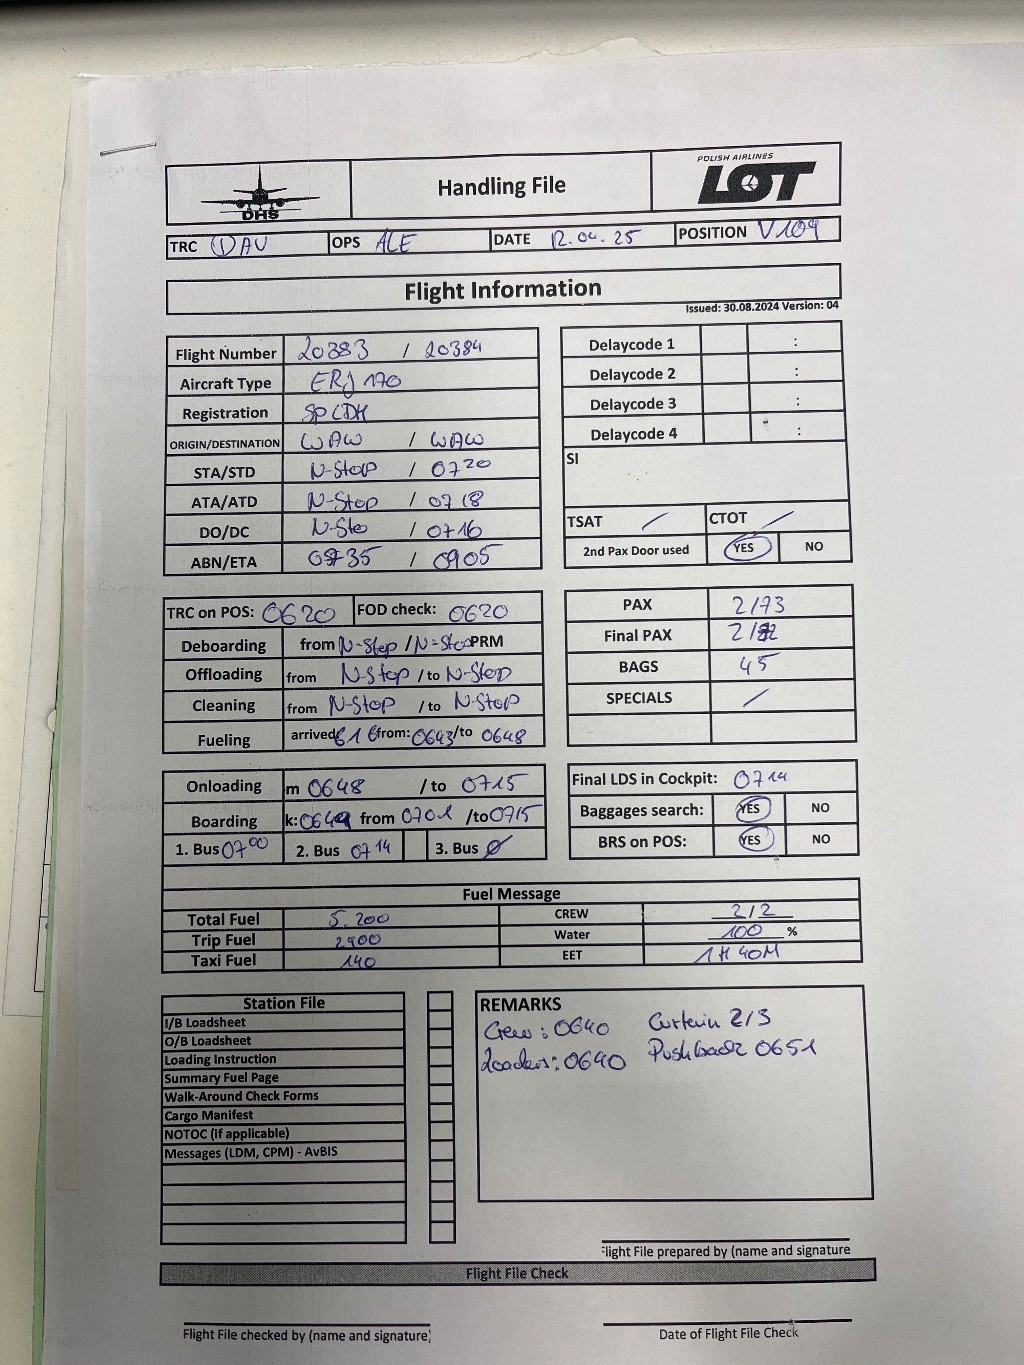 DHS
Handling File
POLISH AIRLINES
LOT
TRC DAV OPS ALE DATE 12.04.25 POSITION V109
Flight Information
Issued: 30.08.2024 Version: 04
Flight Number 20383 / 20384
Aircraft Type ERJ 170
Registration SPLDH
ORIGIN/DESTINATION WAW / WAW
STA/STD N-Stop / 0720
ATA/ATD N-Stop / 0718
DO/DC N-Sto / 0716
ABN/ETA 0735 / 0905
Delaycode 1 :
Delaycode 2 :
Delaycode 3 :
Delaycode 4 :
SI
TSAT / CTOT /
2nd Pax Door used YES NO
TRC on POS: 0620 FOD check: 0620
Deboarding from N-Stop / N-Sto PRM
Offloading from N-Stop / to N-Stop
Cleaning from N-Stop / to N-Stop
Fueling arrived 616 from: 0643 /to 0648
PAX 2/73
Final PAX 2/
BAGS 45
SPECIALS /
Onloading m 0648 / to 0715
Boarding k: 0649 from 0701 /to 0715
1. Bus 0700 2. Bus 0714 3. Bus Ø
Final LDS in Cockpit: 0714
Baggages search: YES NO
BRS on POS: YES NO
Fuel Message
Total Fuel 5.200 CREW 2/2
Trip Fuel 2900 Water 100 %
Taxi Fuel 140 EET 1H 40M
Station File
I/B Loadsheet
O/B Loadsheet
Loading Instruction
Summary Fuel Page
Walk-Around Check Forms
Cargo Manifest
NOTOC (if applicable)
Messages (LDM, CPM) - AvBIS
REMARKS
Crew: 0640 Curtain 2/3
Loaders: 0640 Pushback 0651
Flight File prepared by (name and signature
Flight File Check
Flight File checked by (name and signature)
Date of Flight File Check